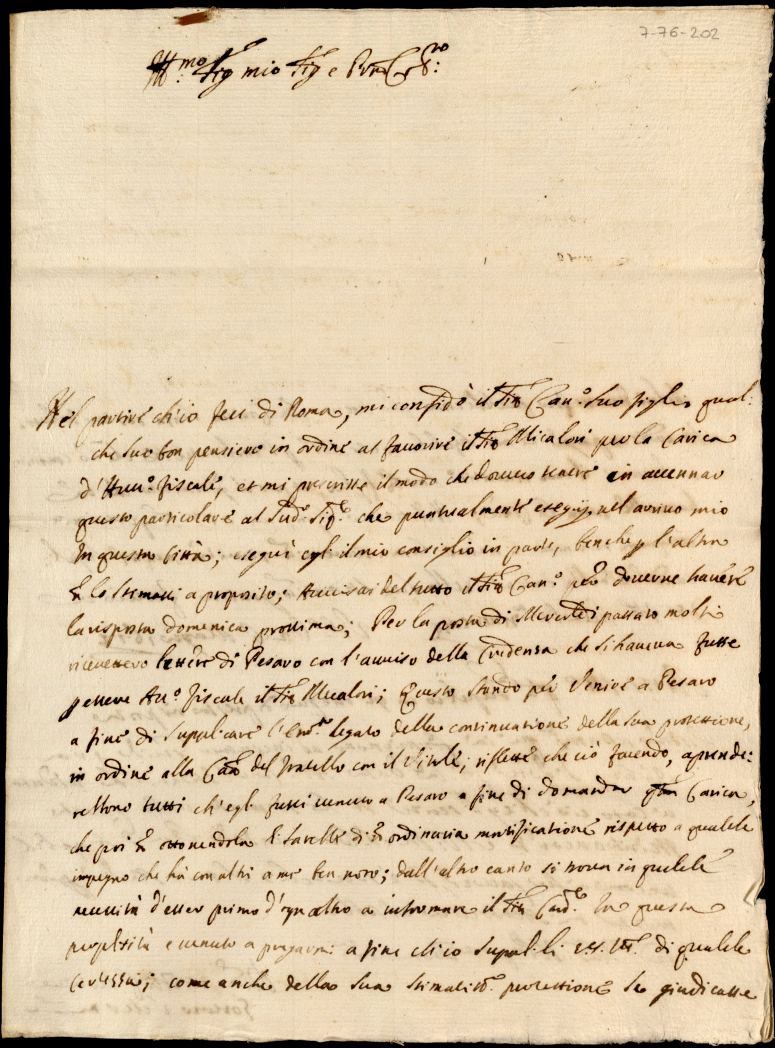 7-76-202
Ill.mo Sig.re mio Sig.re e Pron Col.mo
Nel partire ch'io feci di Roma, mi confidò il Sig.r Can.o suo figlio qual:
che suo bon pensiero in ordine al favorire il Sig.r Micalori per la Carica
d'Avv.o fiscale, et mi prescrisse il modo che dovevo tenere in accennar
questo particolare al Sud.o Sig.re che puntualmente eseguij nel arrivo mio
In questa Città; eseguì egli il mio consiglio in parte, benche p l'altra
lo stimassi a proposito; Avvisai del tutto il Sig.r Can.o però doverne havere
la risposta domenica prossima; Per la posta di Mercoledì passato molti
ricevettero lettere di Pesaro con l'avviso della Credenza che si haveva fusse
p essere Av.o fiscale il Sig.r Micalori; Questo stando per venire a Pesaro
a fine di supplicare l'Em.o legato della continuatione della sua protettione,
in ordine alla del fratello con il riflette che ciò facendo, aprende:
rebbono tutti ch'egli fusse venuto a Pesaro a fine di domandar Carica,
che poi ottenendola li sarebbe di ordinaria mortificatione rispetto a qualche
impegno che hà con altri a me ben noto; dall'altro canto si trova in qualche
necessità d'esser primo d'ogn altro a informare il Sig.r Card.le In questa
perplessità è venuto a pregarmi a fine ch'io supplichi V.S. Ill.ma di qualche
; come anche della sua stimatis.ma protettione se giudicasse